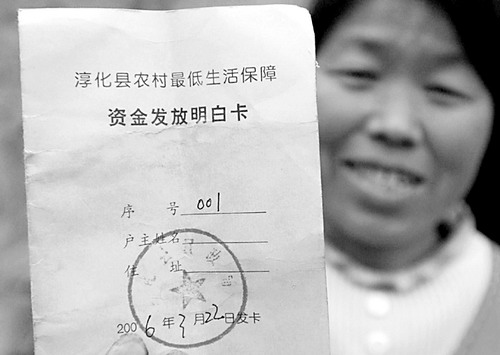 淳化县农村最低生活保障
资金发放明白卡
序 号 001
户主姓名
住 址
2006年3月22日发卡